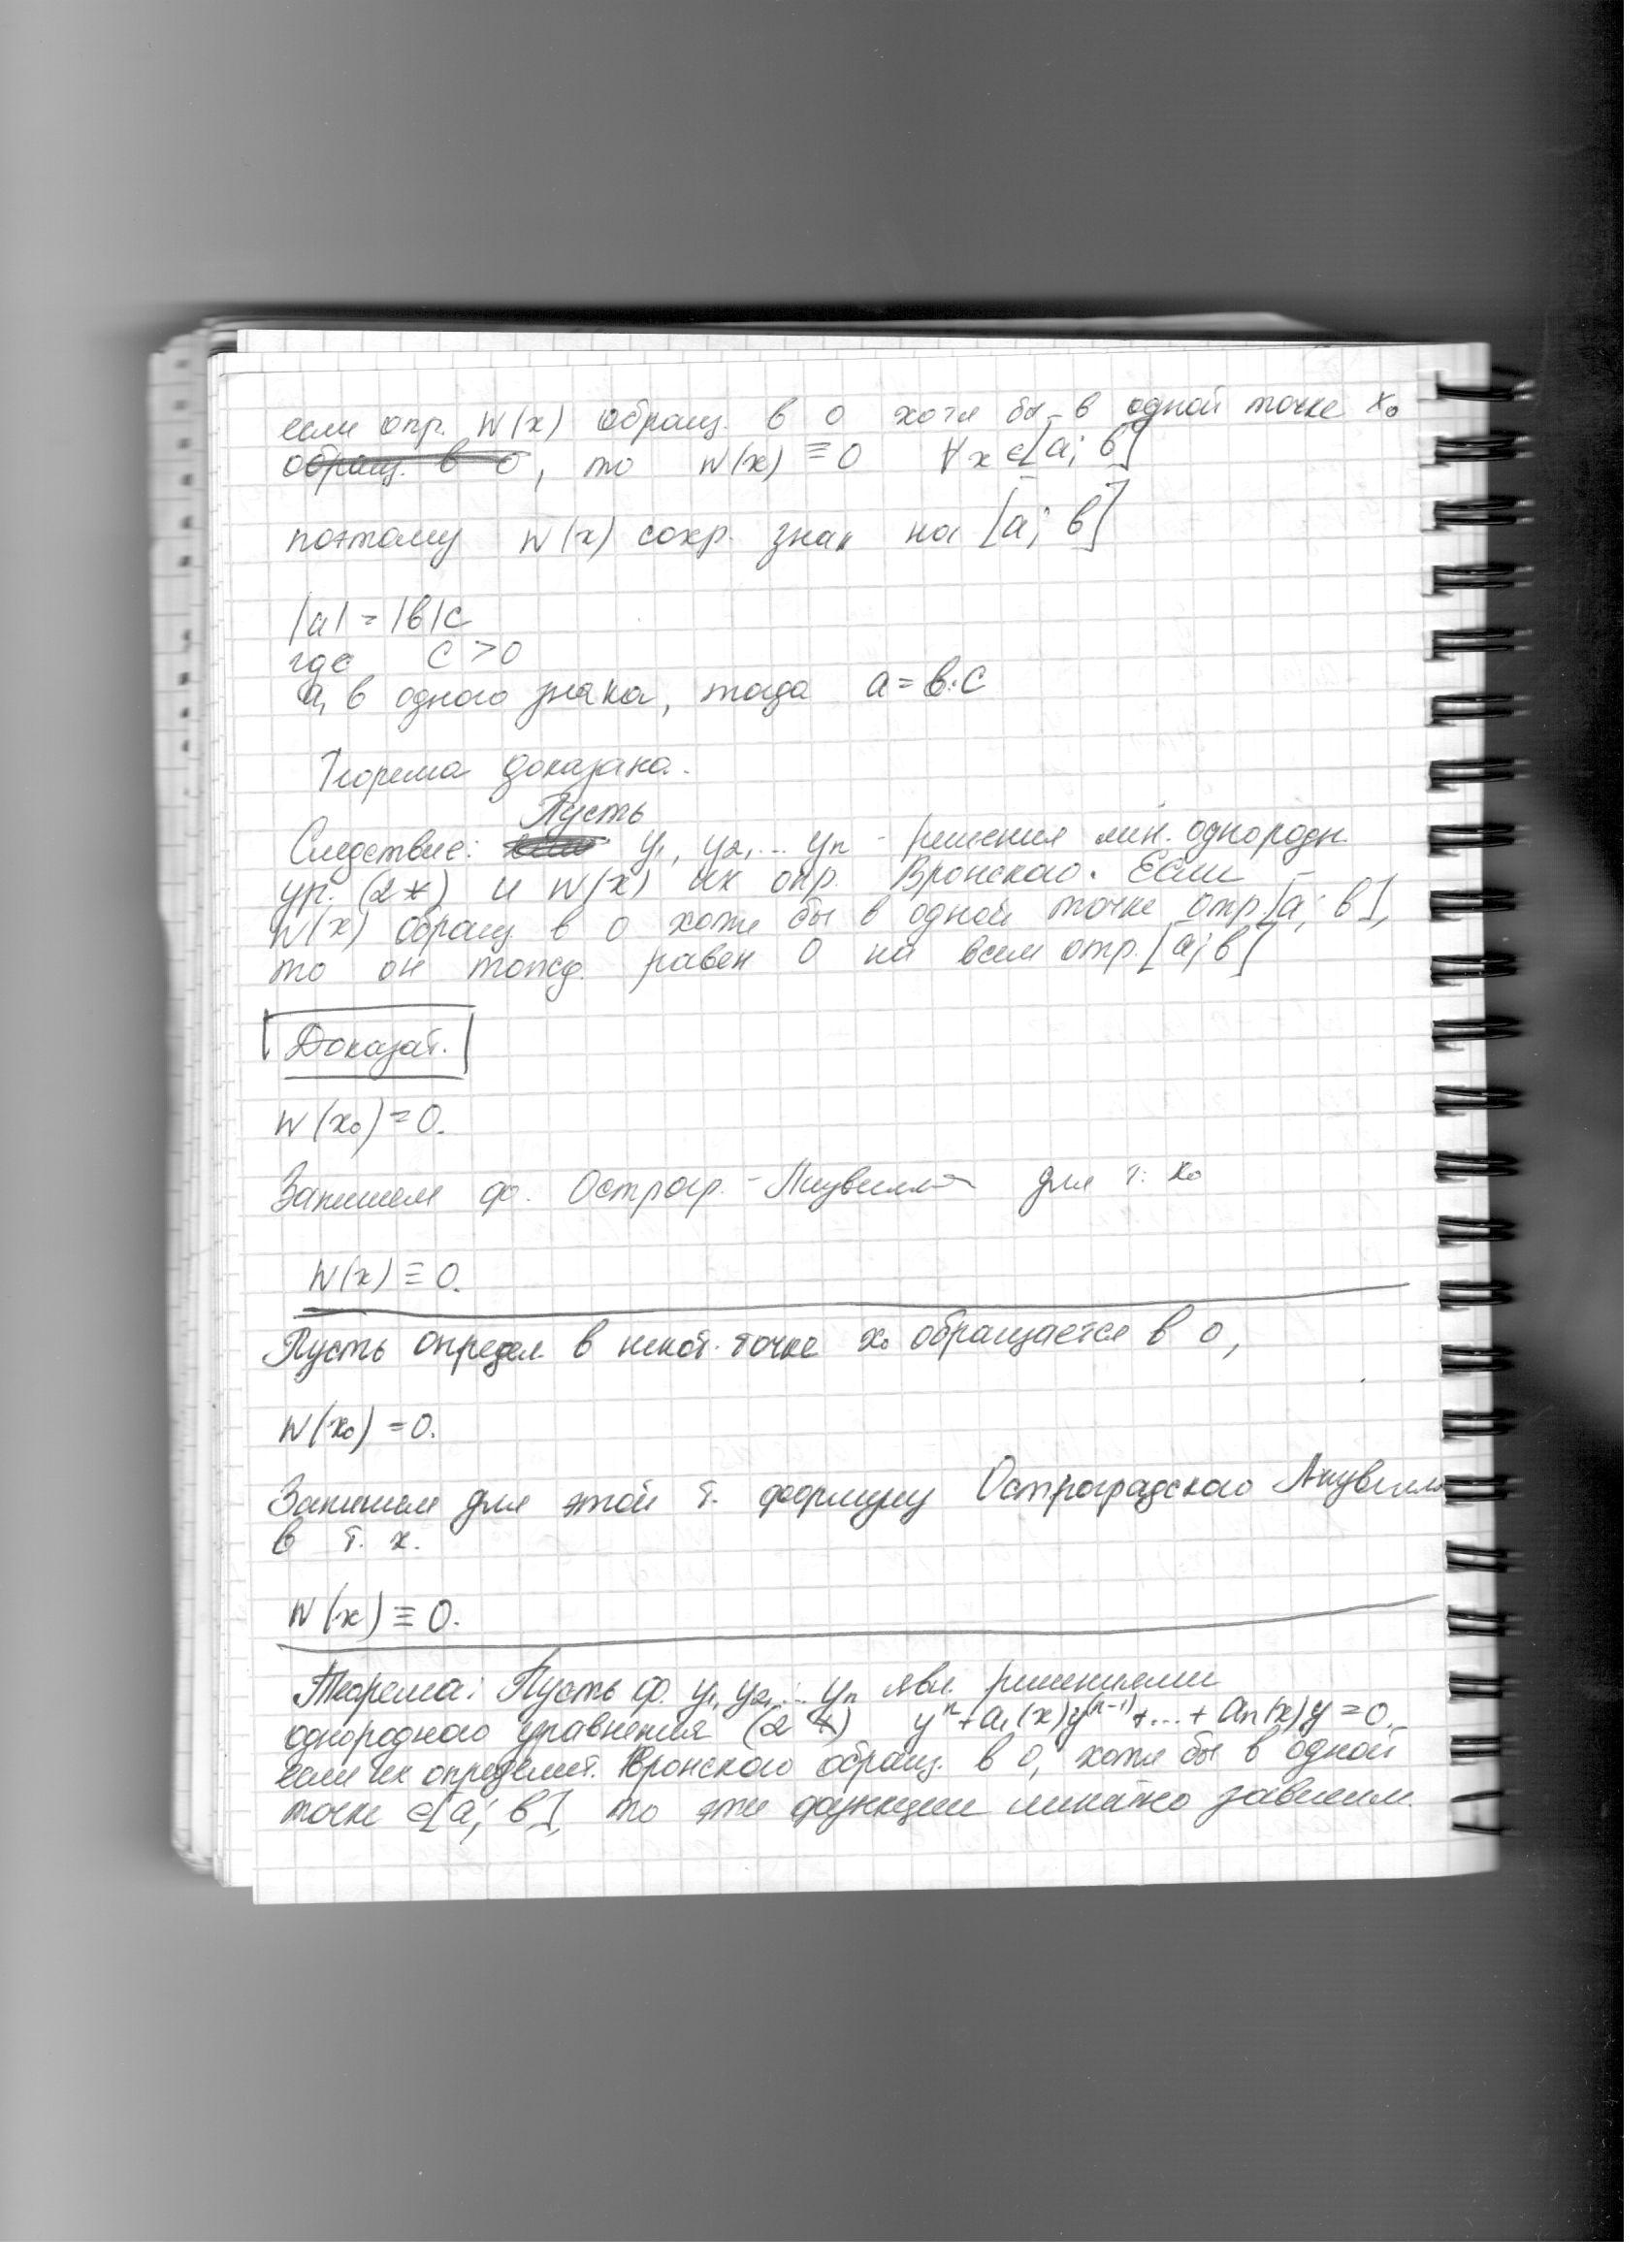 если опр. W(x) обращ. в 0 хотя бы в одной точке x₀
обращ. в 0, то W(x) ≡ 0 ∀x ∈ [a; b]
поэтому W(x) сохр. знак на [a; b]
|a| = |b|c
где c > 0
a, b одного знака, тогда a = b·c
Теорема доказана.
Пусть
Следствие: y₁, y₂, ... yₙ - решения лин. однородн.
ур. (2*) и W(x) их опр. Вронского. Если
W(x) обращ в 0 хотя бы в одной точке отр [a; b],
то он тожд. равен 0 на всем отр. [a; b]
Доказат.
W(x₀) = 0.
Запишем ф. Острогр. - Лиувилля для т. x₀
W(x) ≡ 0.
Пусть определ. в некот. точке x₀ обращается в 0,
W(x₀) = 0.
Запишем для этой т. формулу Остроградского Лиувилля
в т. x.
W(x) ≡ 0.
Теорема: Пусть ф. y₁, y₂, ... yₙ явл. решениями
однородного уравнения (2*) yⁿ + a₁(x)y⁽ⁿ⁻¹⁾ + ... + aₙ(x)y = 0,
если их определит. Вронского обращ. в 0, хотя бы в одной
точке ∈ [a; b], то эти функции линейно зависим.